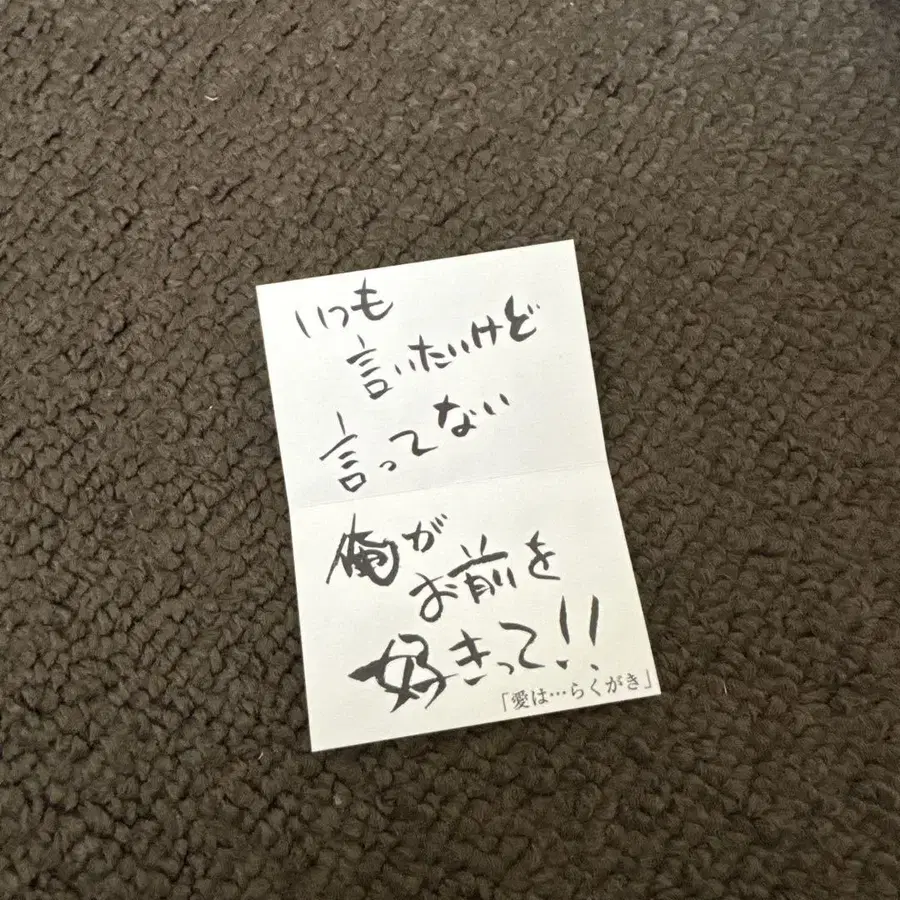 いつも
言いたいけど
言ってない
俺が
お前を
好きって!!
「愛は…らくがき」